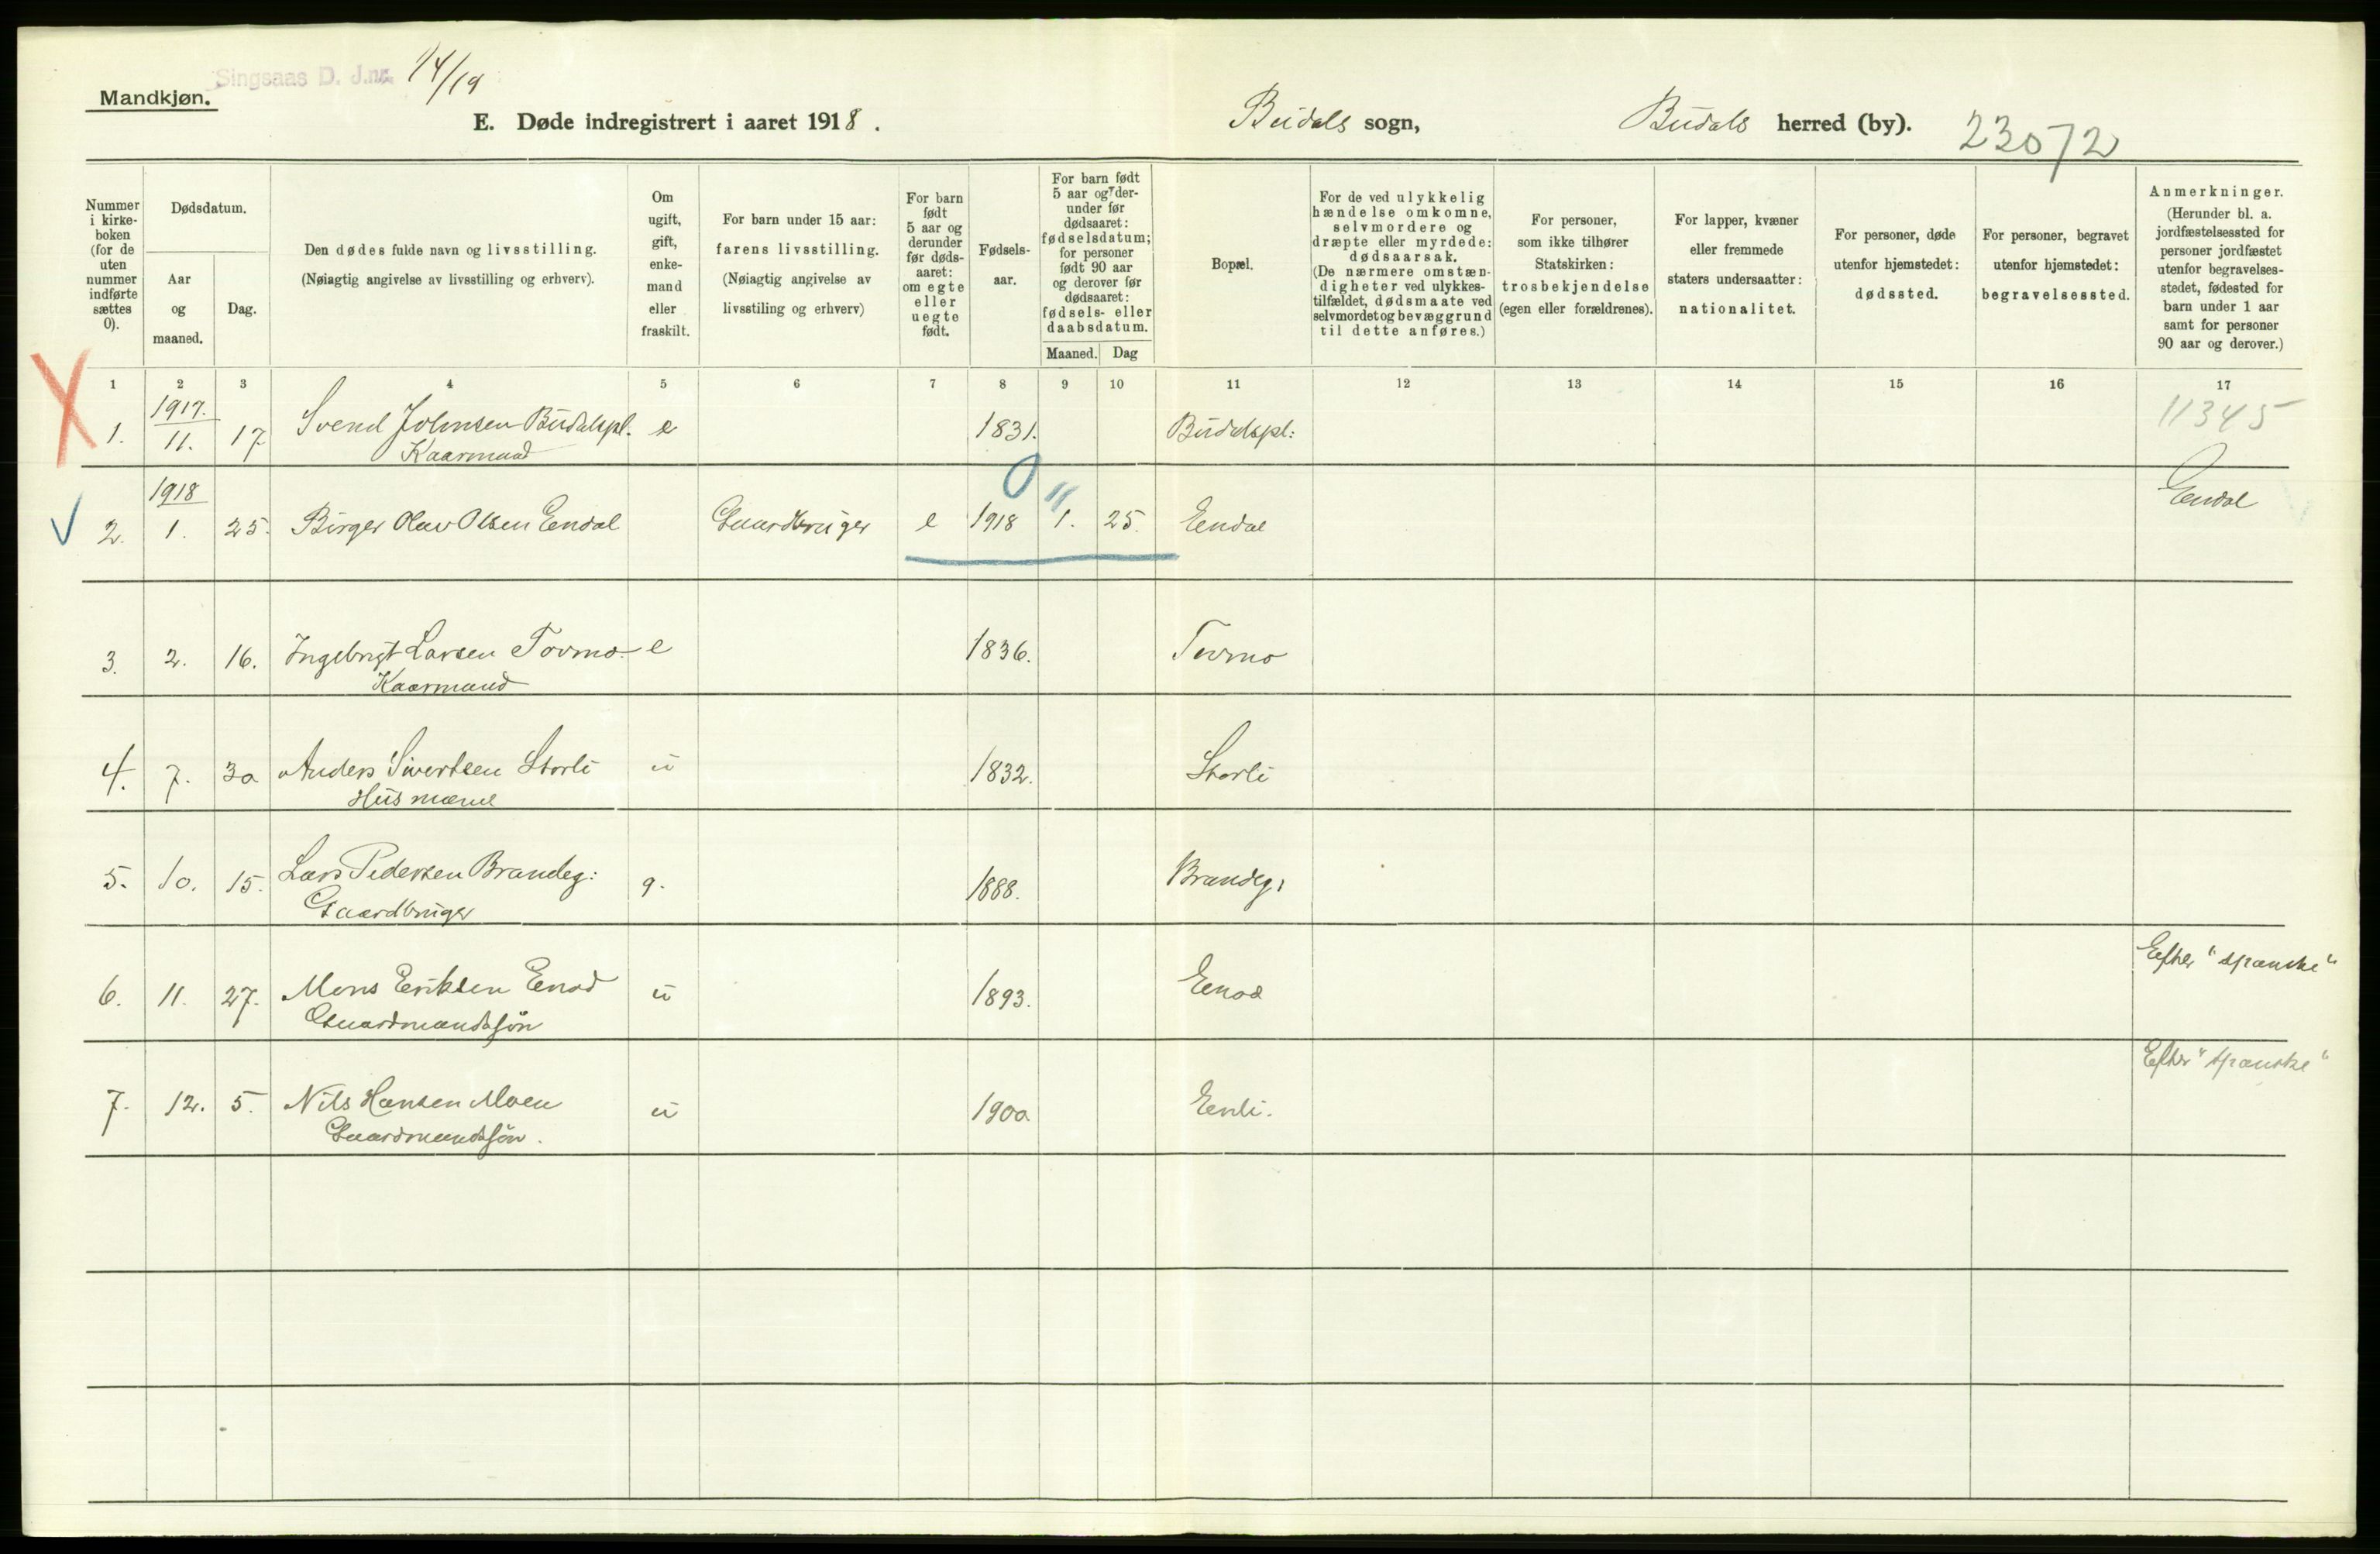 Singsaas D. J.nr. 14/19
Mandkjøn.
E. Døde indregistrert i aaret 1918.
Budals sogn,
Budals herred (by).
23072
Nummer i kirke-boken (for de uten nummer indførte sættes 0).
Dødsdatum.
Aar og maaned.
Dag.
Den dødes fulde navn og livsstilling.
(Nøiagtig angivelse av livsstilling og erhverv).
Om ugift, gift, enke-mand eller fraskilt.
For barn under 15 aar: farens livsstilling.
(Nøiagtig angivelse av livsstiling og erhverv)
For barn født 5 aar og derunder før døds-aaret: om egte eller uegte født.
Fødsels-aar.
For barn født 5 aar og der-under før dødsaaret: fødselsdatum; for personer født 90 aar og derover før dødsaaret: fødsels- eller daabsdatum.
Maaned. Dag
Bopæl.
For de ved ulykkelig hændelse omkomne, selvmordere og dræpte eller myrdede: dødsaarsak.
(De nærmere omstæn-digheter ved ulykkes-tilfældet, dødsmaate ved selvmordet og bevæggrund til dette anføres.)
For personer, som ikke tilhører Statskirken: trosbekjendelse (egen eller forældrenes).
For lapper, kvæner eller fremmede staters undersaatter: nationalitet.
For personer, døde utenfor hjemstedet: dødssted.
For personer, begravet utenfor hjemstedet: begravelsessted.
Anmerkninger.
(Herunder bl. a. jordfæstelsessted for personer jordfæstet utenfor begravelses-stedet, fødested for barn under 1 aar samt for personer 90 aar og derover.)
1 2 3 4 5 6 7 8 9 10 11 12 13 14 15 16 17
1917.
1. 11. 17 Svend Johnsen Budalspl. e 1831. Budalspl: 11345
Kaarmand
1918
2. 1. 25. Birger Olav Olsen Eendal Gaardbruger e 1918 1. 25. Eendal Eendal
0 11
3. 2. 16. Ingebrigt Larsen Tovmo e 1836. Tovmo
Kaarmand
4. 7. 30 Anders Sivertsen Storli u 1832. Storli
Husmand
5. 10. 15. Lars Pedersen Brandeg: g. 1888. Brandeg:
Gaardbruger
6. 11. 27. Mons Eriksen Enod u 1893. Enod Efter "spanske"
Gaardmandssøn
7. 12. 5. Nils Hansen Moen u 1900 Eenli. Efter "spanske"
Gaardmandssøn.